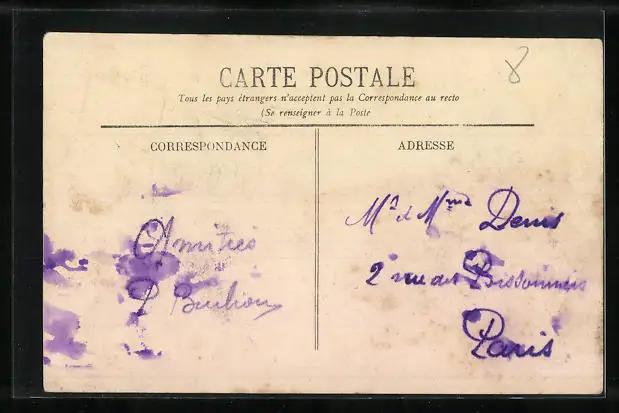 8
CARTE POSTALE
Tous les pays étrangers n'acceptent pas la Correspondance au recto
(Se renseigner à la Poste
CORRESPONDANCE
ADRESSE
Amitiés
Mr & Mme Denis
2 rue des
Paris